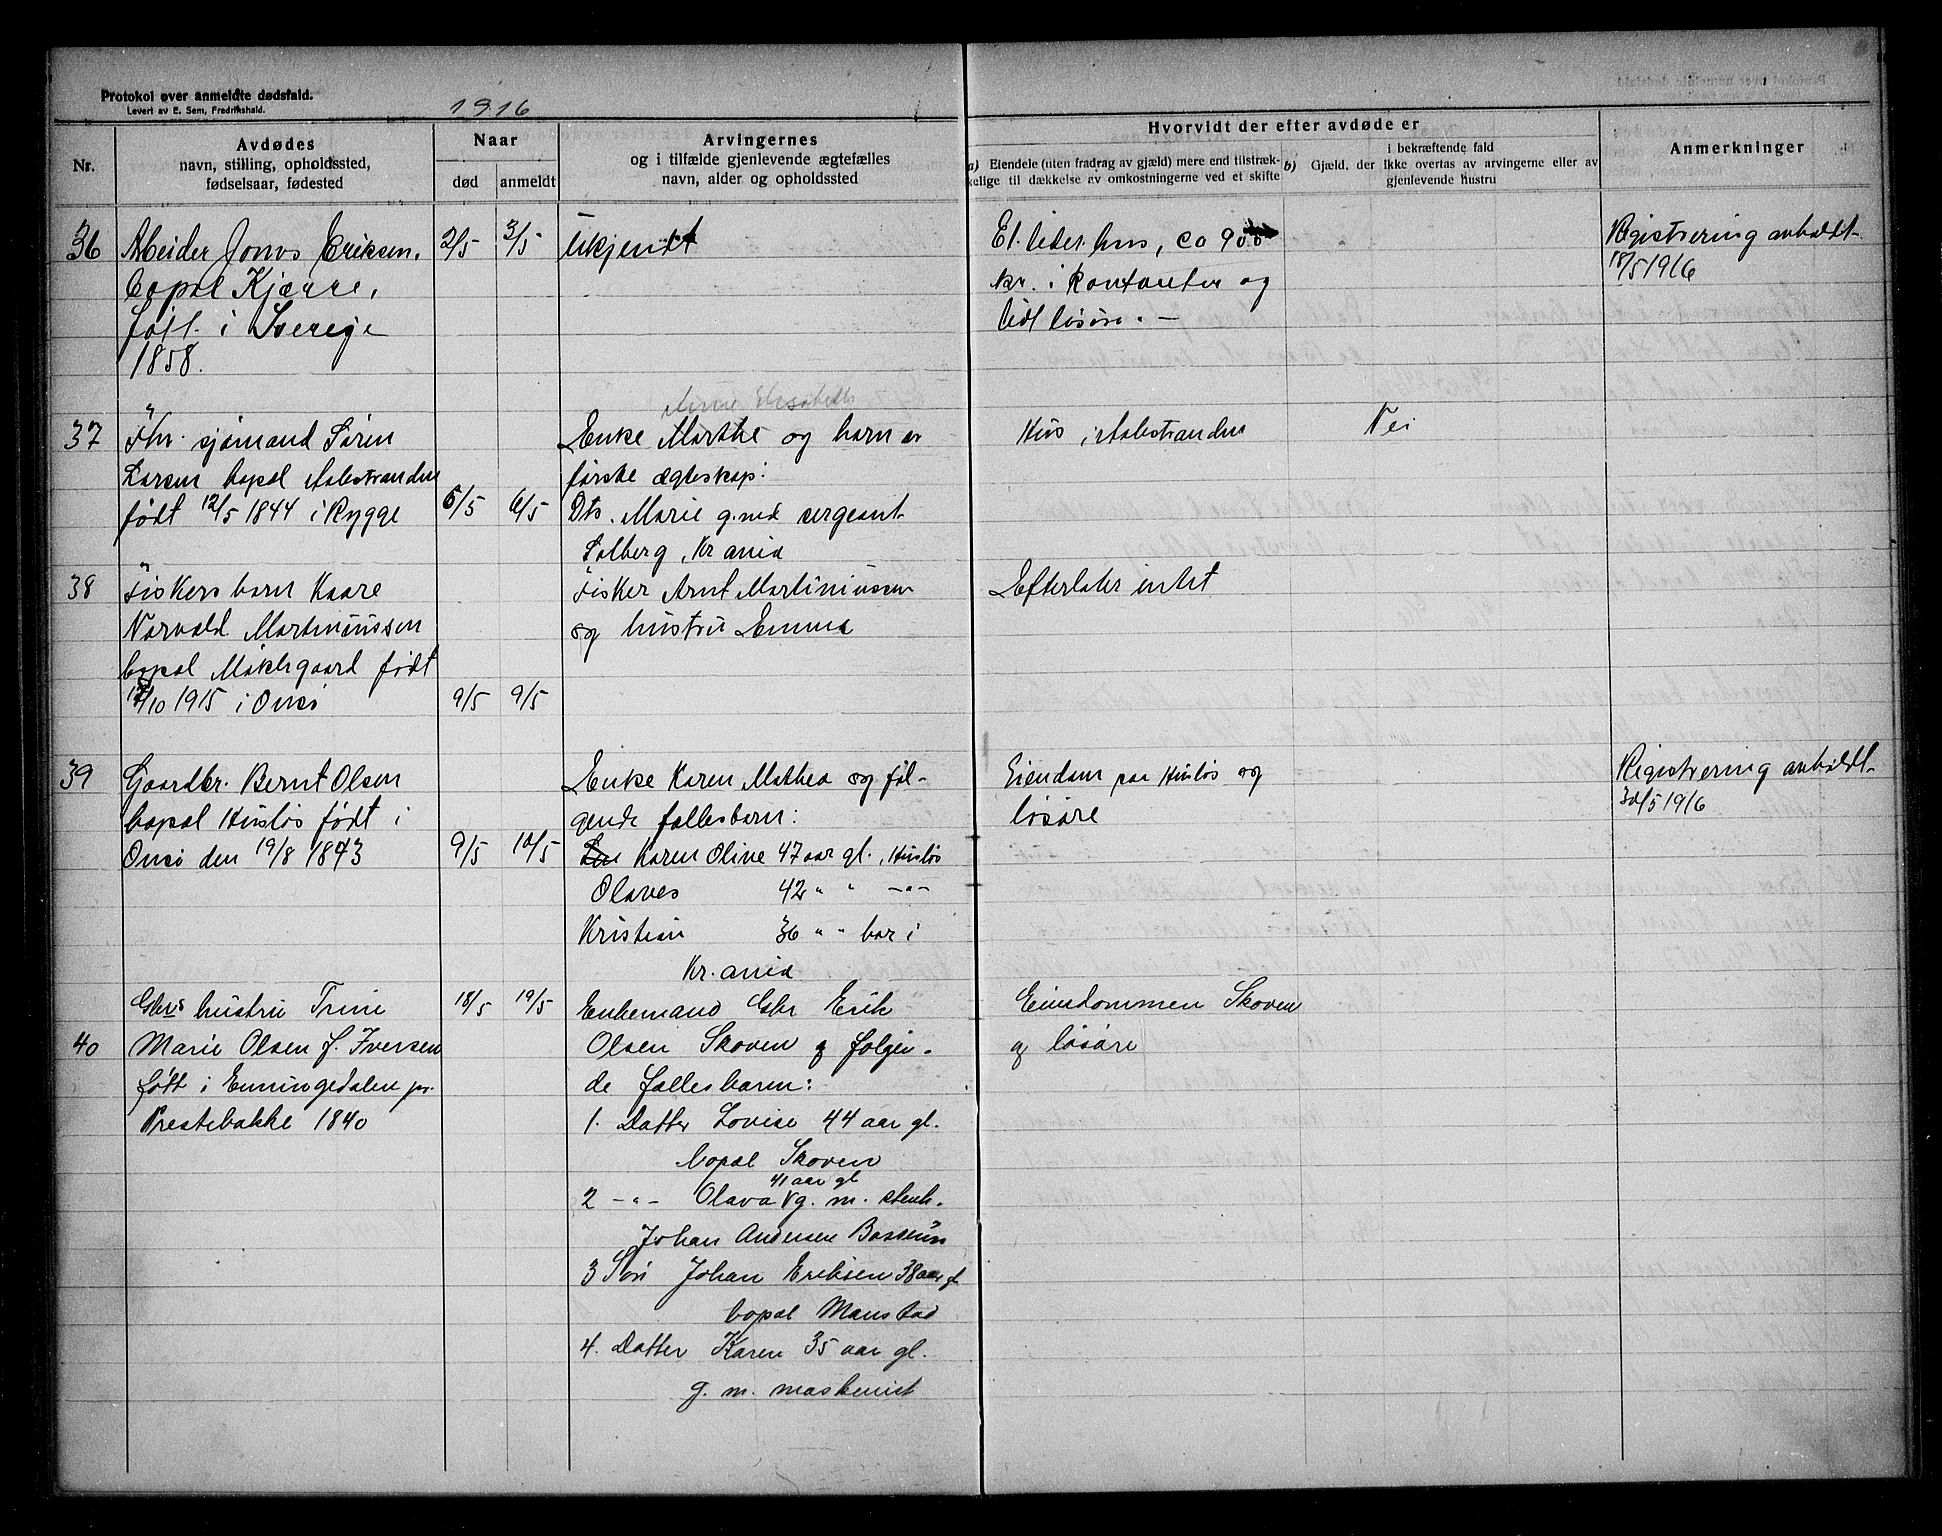 Protokol over anmeldte dødsfald.
Levert av E. Sem, Fredrikshald.
1916
Nr.
Avdødes
navn, stilling, opholdssted,
fødselsaar, fødested
Naar
død
anmeldt
Arvingernes
og i tilfælde gjenlevende ægtefælles
navn, alder og opholdssted
Hvorvidt der efter avdøde er
a) Eiendele (uten fradrag av gjæld) mere end tilstræk-
kelige til dækkelse av omkostningerne ved et skifte
b) Gjæld, der i bekræftende fald
ikke overtas av arvingerne eller av
gjenlevende hustru
Anmerkninger
36
Arbeider Jonas Eriksen,
bopæl Kjærre,
født i Sverige
1858.
2/5
3/5
Ukjendt
Et lidet hus, ca 900
kr. i kontanter og
lidt løsøre. —
Registrering avholdt
18/5 1916
37
Fhv. sjømand Søren
Larsen bopæl Aalestranden
født 12/5 1844 i Rygge
5/5
6/5
Anne Elisabeth
Enke Marthe og barn av
første ægteskap:
Dtr. Marie g. med sergeant
Solberg, Kr.ania
Hus i Aalestranden
Nei
38
Fiskers barn Kaare
Norvald Martiniussen
bopæl Mækkgaard født
12/10 1915 i Onsø
9/5
9/5
Fisker Arnt Martiniussen
og hustru Emma
Efterlater intet
39
Gaardbr. Bernt Olsen
bopæl Husløs født i
Onsø den 19/8 1843
9/5
10/5
Enke Karen Mathea og føl-
gende fællesbarn:
Karen Oline 47 aar gl., Husløs
Olaves 42 " " -"-
Kristian 36 " " bor i
Kr.ania
Eiendom paa Husløs og
løsøre
Registrering avholdt
30/5 1916
40
Gbrs hustru Trine
Marie Olsen f. Iversen
født i Enningedalen pr.
Prestebakke 1840
18/5
19/5
Enkemand Gbr Erik
Olsen Skoven og følgen-
de fællesbarn:
1. Datter Lovise 44 aar gl.
bopæl Skoven
41 aar gl
2 -"- Olava g. m. stenh.
Johan Andersen
3 Søn Johan Eriksen 38 aar gl
bopæl Manstad
4. Datter Karen 35 aar gl.
g. m. maskenist
Eiendommen Skoven
og løsøre